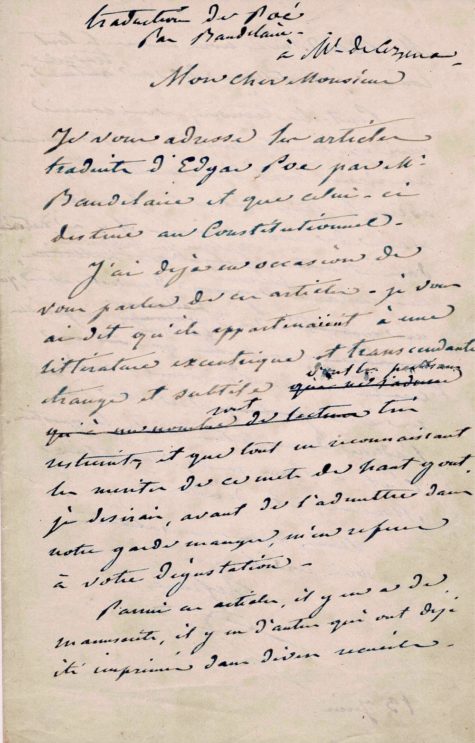 traduction de Poé
Par Baudelaire
à Mr de Cezena
Mon cher Monsieur
Je vous adresse les articles
traduits d'Edgar Poe par Mr
Baudelaire et que celui-ci
destine au Constitutionnel.
J'ai déjà eu occasion de
vous parler de ces articles - je vous
ai dit qu'ils appartenaient à une
littérature excentrique et transcendante
dont les partisans
étrange et subtile qui ne s'adresse
sont
qu'à un nombre de lecteurs très
restreints, et que tout en reconnaissant
les mérites de ce mets de haut gout,
je désirais, avant de l'admettre dans
notre garde manger, m'en referer
à votre dégustation.
Parmi ces articles, il y en a de
manuscrits, il y en d'autres qui ont déjà
été imprimés dans divers recueils.